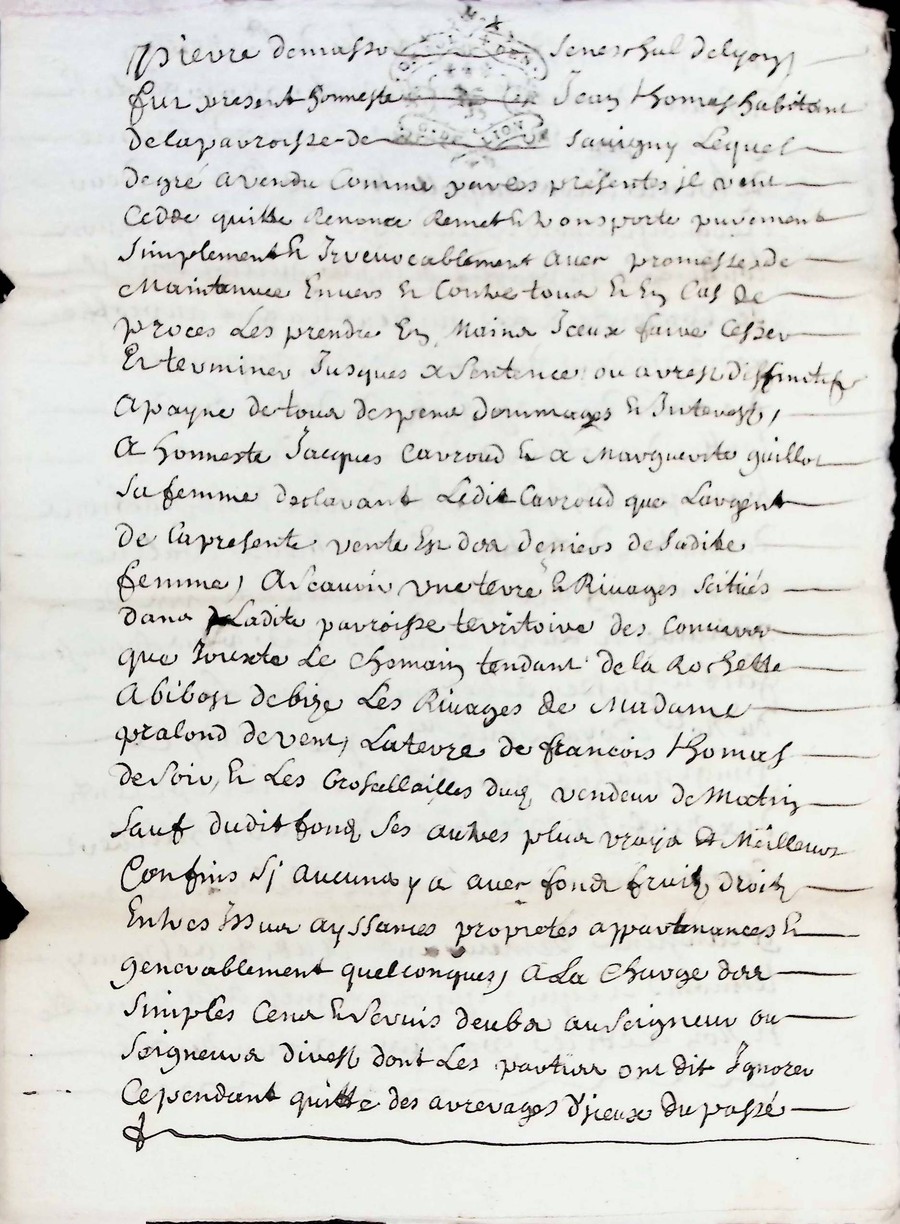 Pierre demasso Seneschal delyon
fut present honneste Jean thomas habitant
delaparroisse de Savigny Lequel
degré avendu Comme par les présentes il vent
Cedde quitte Renonce Remet et transporte purement
Simplement et Irrevocablement avec promesse de
Maintenue Envers et Contre tous et En Cas de
proces Les prendre En Mains Iceux faire Cesser
Et terminer Jusques a Sentence ou arrest diffinitif
Apayne de tous despens dommages et Interests,
A honneste Jacques Carroud et a Marguerite guillot
Sa femme declarant Ledit Carroud que Largent
de Lapresente vente Est des deniers de Sadite
femme, AScavoir une terre et Rivages Scitués
dans Ladite parroisse territoire des
que Jouxte Le Chemain tendant de la Rochette
Abibost debize Les Rivages de Madame
pralond de vent, Laterre de francois thomas
de Soir, et Les duq vendeur de Matin
Sauf dudit fond Ses autres plus vrays et Meilleurs
Confins Sj aucuns y a avec fond fruits droits
Entrées Issues ayssances proprietés appartenances et
generablement quelconques, A La Charge des
Simples Cens et Servis deubs au Seigneur ou
Seigneurs divest dont Les parties ont dit Ignorer
Cependant quitte des arrerages d'jceux du passé